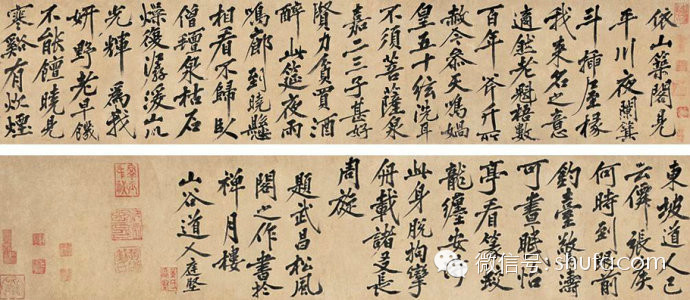 依山築閣見
平川夜闌箕
斗插屋椽
我来名之意
適然老魁梧數
百年斧斤所
赦今參天鳴媧
皇五十弦洗耳
不須菩薩泉
嘉二三子甚好
賢力貧買酒
醉此筵夜雨
鳴廊到曉懸
相看不歸臥
僧氈泉枯石
燥復潺湲山川
光輝為我
妍野老早饑
不能饘曉見
寒谿有炊煙
東坡道人已
張侯
何時到前
釣臺濤
可晝眠怡
亭看
龍纏安得
此身脫拘攣
舟載諸友長
周旋
題武昌松風
閣之作書於
禪月樓
山谷道人庭堅
微信号: